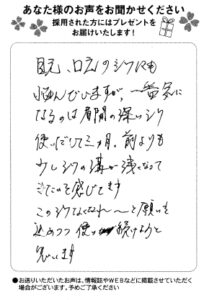 あなた様のお声をお聞かせください
採用された方にはプレゼントを
お届けいたします!
目元、口元のシワにも
悩んでいますが、一番気に
なるのは眉間の深いシワ
使いだして三ヶ月。前よりも
少しシワの溝が浅くなって
きたのを感じてます
このシワなくなれ〜〜と願いを
込めつつ使い続けようと
思います
●お送りいただいたお声は、情報誌やWEBなどに掲載させていただく
場合がございます。予めご了承ください